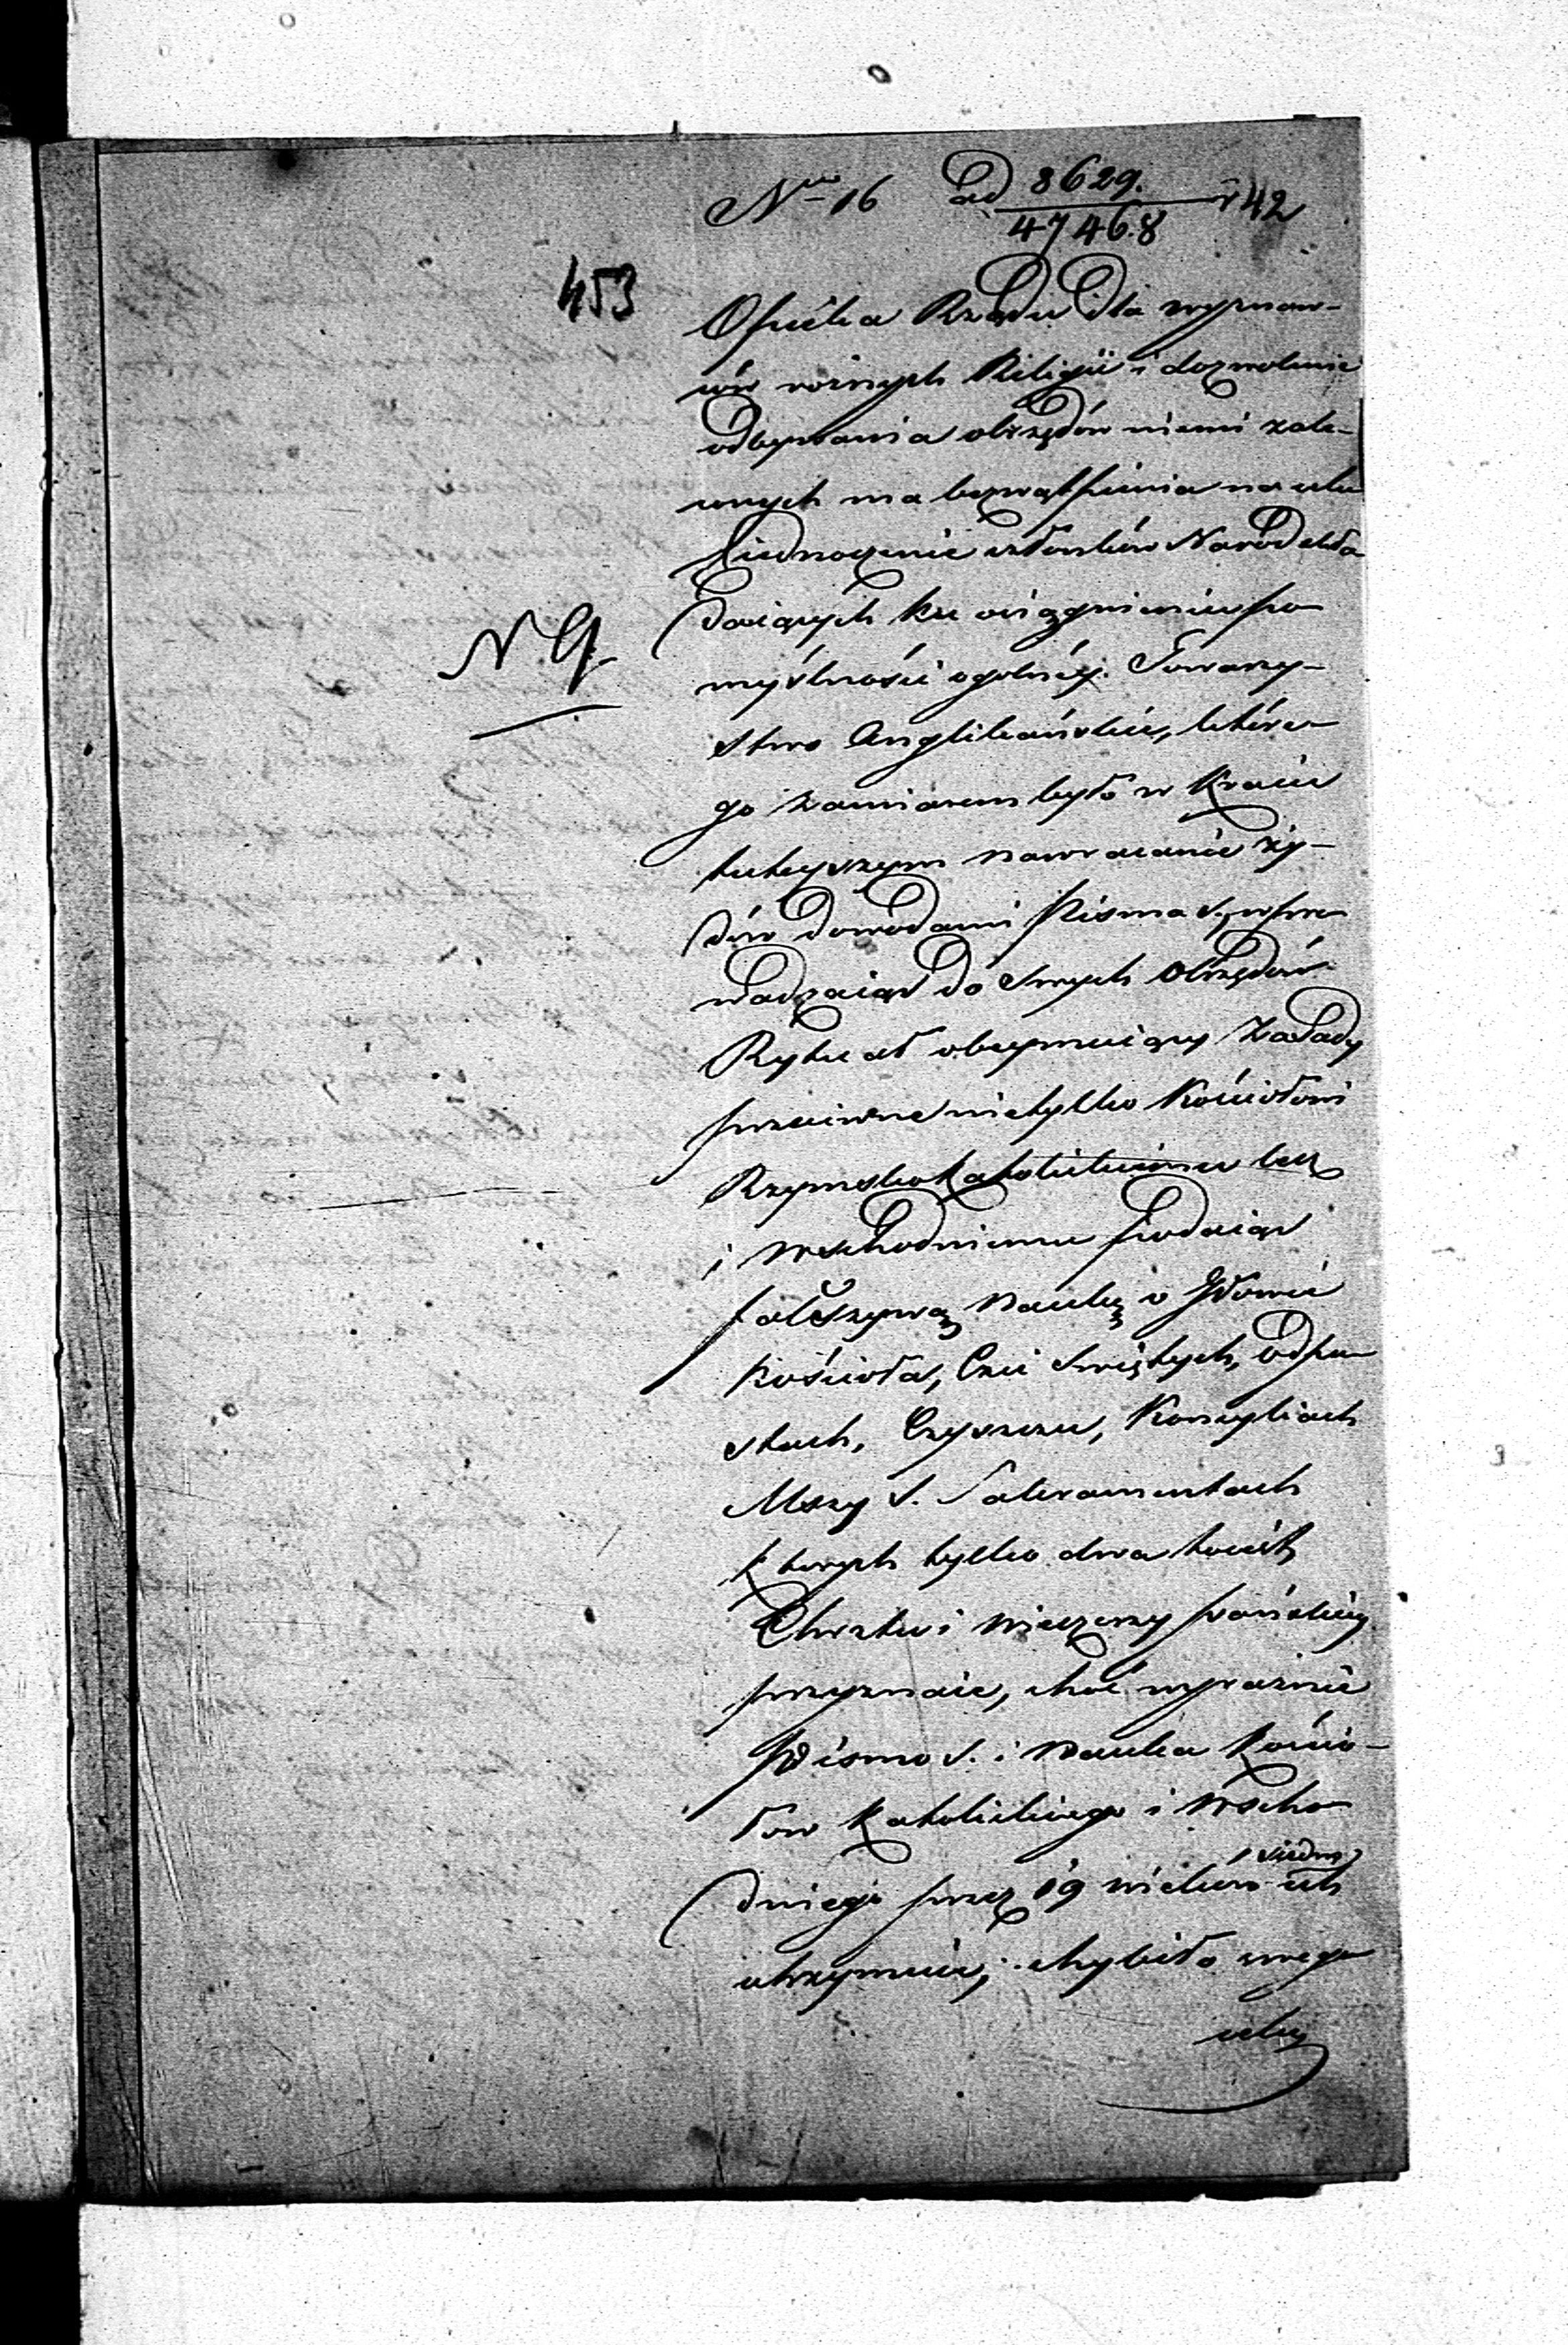 Nro 16 ad 8629. r 42
47468
453
Opieka Rządu dla wyznaw-
ców rożnych Religii i dozwolenie
odbywania obrzędów niemi zale-
conych ma bezwątpienia na celu
Jednoczenie członków Naród skła
daiących ku osiągnieniu po
myślności ogolnéj. Towarzy-
stwo Anglikańskie, które-
go zamiarem było w Kraiu
tuteyszym nawracanie ży-
dów dowodami Pisma S. wpro
wadzaiąc do swych Obrzędów
Rytuał obeymuiący Zasady
przeciwne nietylko Kościołowi
Rzymsko Katolickiemu lecz
i Wschodniemu podaiąc
fałszywą naukę o Głowie
Kościoła, Czci Swiętych, odpu-
stach, Czyszcu, Koncyliach
Mszy S. Sakramentach
których tylko dwa to iest
Chrztu i Wieczerzy pańskiey
przyznaie, choć wyraźnie
Pismo S. i nauka Kościo-
łow Katolickiego i Wscho
dniego przez 19 wieków ich siedm
utrzymuie; chybiło swego
celu